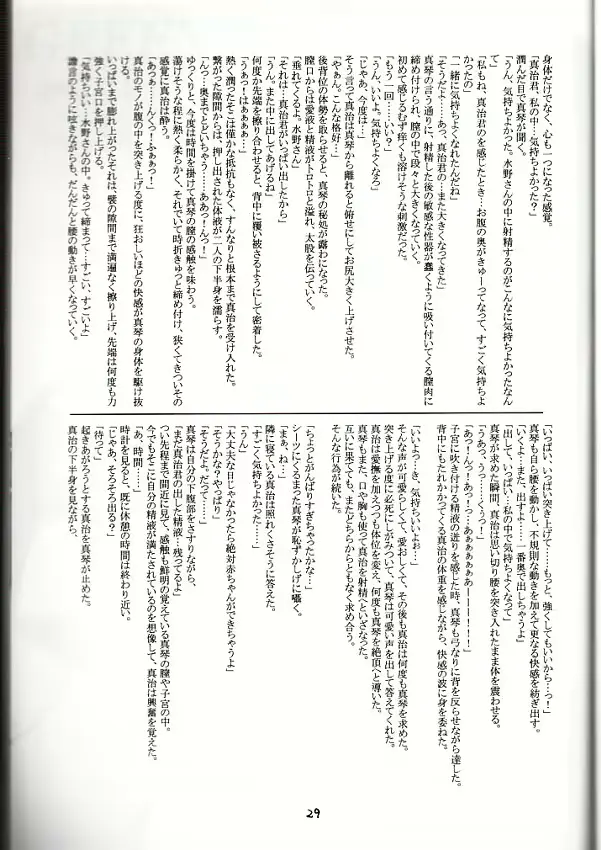 身体だけでなく、心も一つになった感覚。
「真治君、私の中…気持ちよかった？」
潤んだ目で真琴が聞く。
「うん、気持ちよかった。水野さんの中に射精するのがこんなに気持ちよかったなん
て」
「私もね、真治君のを感じたとき…お腹の奥がきゅーってなって、すごく気持ちよ
かったの」
「一緒に気持ちよくなれたんだね」
「そうだよ…あっ、真治君の…また大きくなってきた」
真琴の言う通りに、射精した後の敏感な性器が蠢くように吸い付いてくる膣肉に
締め付けられ、膣の中で段々と大きくなっていく。
初めて感じるむず痒くも溶けそうな刺激だった。
「もう一回……いい？」
「うん、いいよ。気持ちよくなろ」
「じゃあ、今度は…」
そう言って真治は真琴から離れると俯せにしてお尻大きく上げさせた。
「やぁん。こんな格好…」
後背位の体勢を取らせると、真琴の秘処が露わになった。
膣口からは愛液と精液がトロトロと溢れ、太股を伝っていく。
「垂れてくるよ。水野さん」
「それは…真治君がいっぱい出したから」
「うん。また中に出してあげるね」
何度か先端を擦り合わせると、背中に覆い被さるようにして密着した。
「うぁっ！はぁぁぁ…」
熱く潤ったそこは僅かな抵抗もなく、すんなりと根本まで真治を受け入れた。
繋がった隙間からは、押し出された体液が二人の下半身を濡らす。
「んっ…奥までとどいちゃう？……ああっ！んっ！」
ゆっくりと、今度は時間を掛けて真琴の膣の感触を味わう。
蕩けそうな程に熱く柔らかく、それでいて時折きゅっと締め付け、狭くてきついその
感覚に真治は酔う。
「あっぁ……んくっ！ふぁぁっ！」
真治のモノが腹の中を突き上げる度に、狂おしいほどの快感が真琴の身体を駆け抜
ける。
いっぱいまで膨れ上がったそれは、襞の隙間まで満遍なく擦り上げ、先端は何度も力
強く子宮口を押し上げる。
「気持ちいい…水野さんの中。きゅって締まって…すごい、すごいよ」
譫言のように呟きながらも、だんだんと腰の動きが早くなっていく。
「いっぱい、いっぱい突き上げて……もっと、強くしてもいいから…っ！」
真琴も自ら腰を動かし、不規則な動きを加えて更なる快感を紡ぎ出す。
「いくよ…また、出すよ……一番奥で出しちゃうよ」
「出して、いっぱい…私の中で気持ちよくなって」
真琴が求めた瞬間、真治は思い切り腰を突き入れたまま体を震わせる。
「うあっ、うっ……くぅっ！」
「あっ！んっ！あっーっ…あぁぁぁぁあーーー！！！」
子宮に吹き付ける精液の迸りを感じた時、真琴も弓なりに背を反らせながら達した。
背中にもたれかかってくる真治の体重を感じながら、快感の波に身を委ねた。
「いいよっ…き、気持ちいいよぉ…」
そんな声が可愛らしくて、愛おしくて、その後も真治は何度も真琴を求めた。
突き上げる度に必死にしがみついて、真琴は可愛い声を出して答えてくれた。
真治は愛撫を加えつつも体位を変え、何度も真琴を絶頂へと導いた。
真琴もまた、口や胸も使って真治を射精へといざなった。
互いに果てても、またどちらからともなく求め合う。
そんな行為が続いた。
「ちょっとがんばりすぎちゃったかな…」
シーツにくるまった真琴が恥ずかしげに囁く。
「まぁ、ね…」
隣に寝ている真治は照れくさそうに答えた。
「すごく気持ちよかった……」
「うん」
「大丈夫な日じゃなかったら絶対赤ちゃんができちゃうよ」
「そうかな？やっぱり」
「そうだよ。だって……」
真琴は自分の下腹部をさすりながら、
「まだ真治君の出した精液…残ってるよ」
つい先程まで間近に見て、感触も鮮明の覚えている真琴の膣や子宮の中。
今でもそこに自分の精液が満たされているのを想像して、真治は興奮を覚えた。
「あ、時間……」
時計を見ると、既に休憩の時間は終わり近い。
「じゃあ、そろそろ出る？」
「待って」
起きあがろうとする真治を真琴が止めた。
真治の下半身を見ながら、
29